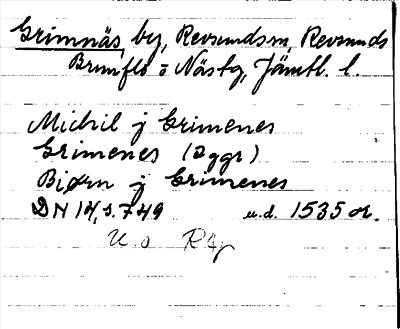 Grimnäs, by, Revsundsm, Revsunds
Brunflo o Näsby, Jämtl. l.
Michil j Grimenes
Grimenes (2 ggr)
Biørn j Grimenes
DN 14, s. 749 u.d. 1535 or.
U. o